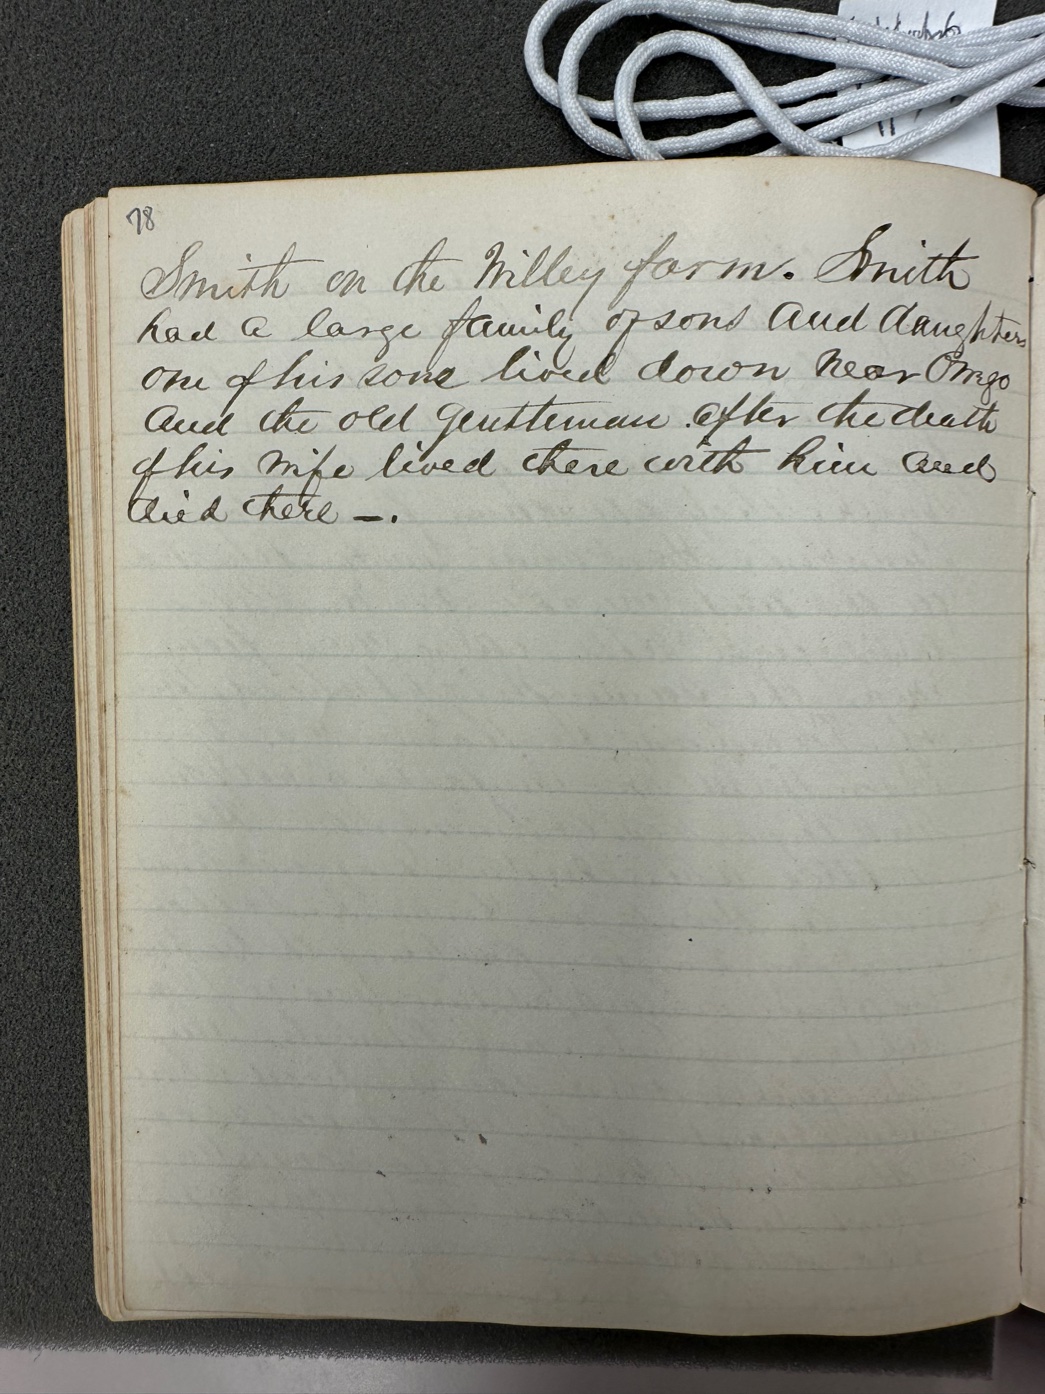 78
Smith on the Willey farm. Smith
had a large family of sons and daughters
one of his sons lived down near
and the old gentleman after the death
of his wife lived there with him and
died there —.